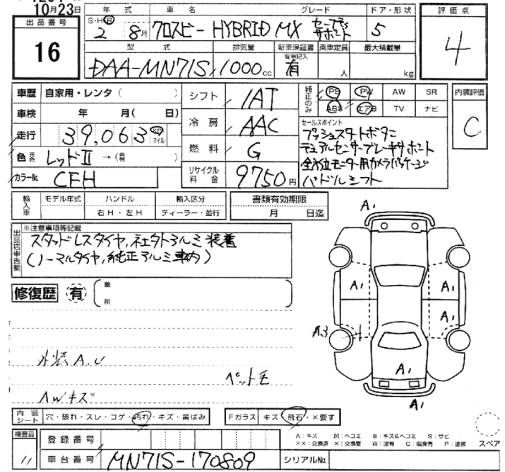 10月23日
出品番号 16
年式 車名 グレード ドア・形状
S・H・R 2年 8月 クロスビー HYBRID MX セーフティサポート 5
型式 排気量 新車保証書 乗車定員 最大積載量
DAA-MN71S 1000cc (有効記録簿) 有 人 kg
評価点 4
車歴 自家用・レンタ( )
車検 年 月( 日)
走行 39,063 マイル
色 元色 レッドII →(色替)
カラーNo. CFH
シフト IAT
冷房 AAC
燃料 G
リサイクル料金 9750円
純正のみ PS PW AW SR
ABS エアB TV ナビ
セールスポイント
プッシュスタートボタン
デュアルセンサーブレーキサポート
全方位モニター用カメラパッケージ
パドルシフト
内装評価 C
輸入車 モデル年式 ハンドル 輸入区分
年 右H・左H ディーラー・並行
書類有効期限
月 日迄
出品店申告欄 ※注意事項等記載
スタッドレスタイヤ、社外アルミ装着
(ノーマルタイヤ、純正アルミ車内)
修復歴 有 箇所
外装A.U
ペット毛
AWキズ
A1
A1 A1 A1
A3
A1
内装シート 穴・破れ・スレ・コゲ・汚れ・キズ・黄ばみ
Fガラス キズ・飛石・×要す
検査員 11
登録番号
車台番号 MN71S-170809
シリアルNo.
A:キズ M:ヘコミ B:キズ&ヘコミ S:サビ
××:交換済 ×:要交換 W:波有 C:腐食有 P:塗装
スペア